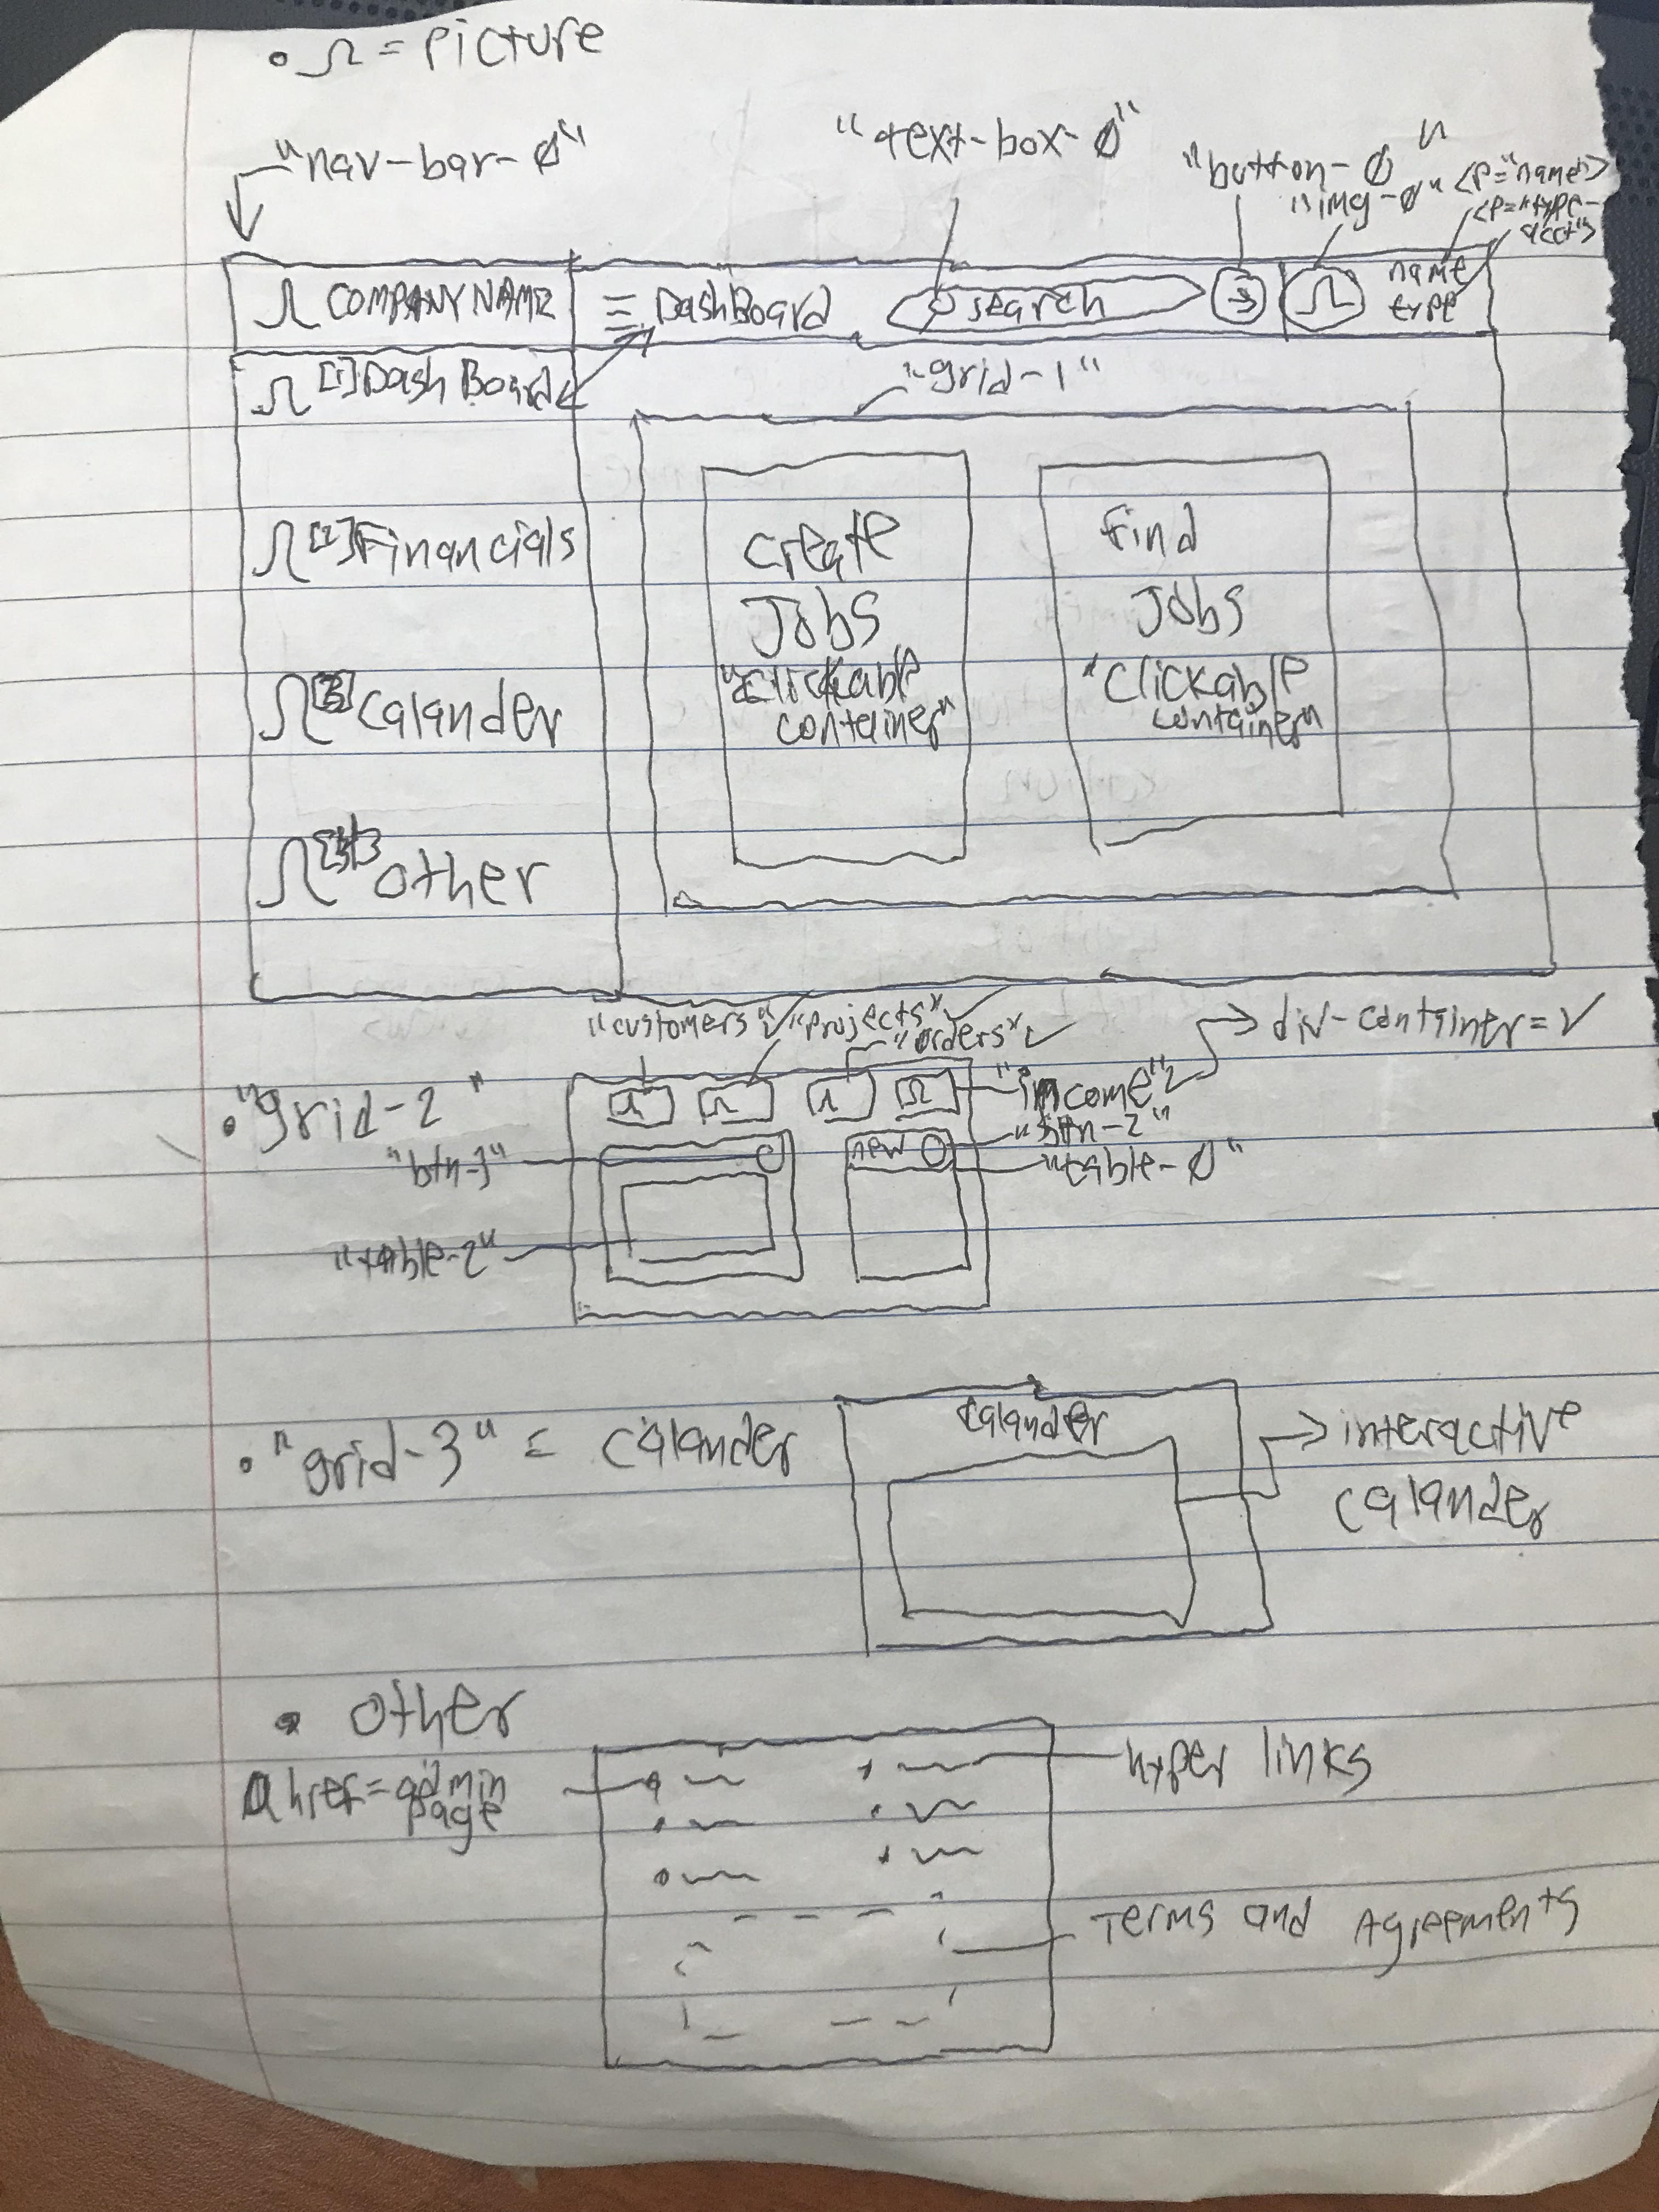 • Ω = picture
"nav-bar-Ø"
"text-box-Ø"
"button-Ø"
"img-Ø"
<P="name">
<P="type-
acct">
Ω COMPANY NAME
≡ DashBoard
search
→
Ω
name
type
Ω [1] Dash Board
"grid-1"
Ω [2] Financials
Ω [3] Calander
Ω [4] other
create
Jobs
"clickable
container"
find
Jobs
"clickable
container"
"customers" ✓
"projects" ✓
"orders" ✓
"income" ✓
div-container = ✓
• "grid-2"
Ω Ω Ω Ω
"btn-3"
new
"btn-2"
"table-Ø"
"table-2"
• "grid-3" = calander
calander
interactive
calander
• other
a href = admin
page
hyper links
Terms and Agreements